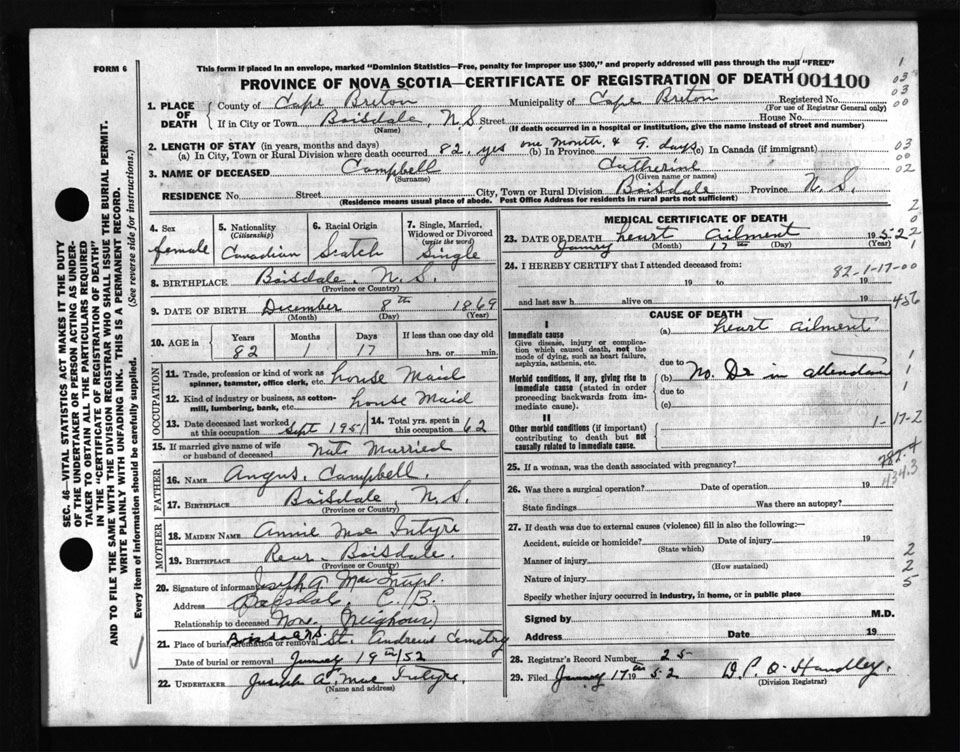 FORM 6
This form if placed in an envelope, marked "Dominion Statistics—Free, penalty for improper use $300," and properly addressed will pass through the mail "FREE"
PROVINCE OF NOVA SCOTIA—CERTIFICATE OF REGISTRATION OF DEATH 001100
1. PLACE OF DEATH
County of Cape Breton Municipality of Cape Breton Registered No.
(For use of Registrar General only)
If in City or Town Boisdale, N.S. Street House No.
(Name) (If death occurred in a hospital or institution, give the name instead of street and number)
2. LENGTH OF STAY (in years, months and days)
(a) In City, Town or Rural Division where death occurred 82 yrs one month & 9 days (b) In Province (c) In Canada (if immigrant)
3. NAME OF DECEASED Campbell Catherine
(Surname) (Given name or names)
RESIDENCE No. Street City, Town or Rural Division Boisdale Province N.S.
(Residence means usual place of abode. Post Office Address for residents in rural parts not sufficient)
1
03
03
00
03
00
02
SEC. 46—VITAL STATISTICS ACT MAKES IT THE DUTY
OF THE UNDERTAKER OR PERSON ACTING AS UNDER-
TAKER TO OBTAIN ALL THE PARTICULARS REQUIRED
IN THE "CERTIFICATE OF REGISTRATION OF DEATH"
AND TO FILE THE SAME WITH THE DIVISION REGISTRAR WHO SHALL ISSUE THE BURIAL PERMIT.
WRITE PLAINLY WITH UNFADING INK. THIS IS A PERMANENT RECORD.
Every item of information should be carefully supplied. (See reverse side for instructions.)
4. Sex
female
5. Nationality
(Citizenship)
Canadian
6. Racial Origin
Scotch
7. Single, Married,
Widowed or Divorced
(write the word)
Single
8. BIRTHPLACE Boisdale N.S.
(Province or Country)
9. DATE OF BIRTH December 8th 1869
(Month) (Day) (Year)
10. AGE in
Years Months Days If less than one day old
82 17 hrs. or min.
OCCUPATION
11. Trade, profession or kind of work as
spinner, teamster, office clerk, etc. house Maid
12. Kind of industry or business, as cotton-
mill, lumbering, bank, etc. house Maid
13. Date deceased last worked
at this occupation Sept 1951
14. Total yrs. spent in
this occupation 62
15. If married give name of wife
or husband of deceased Not Married
FATHER
16. NAME Angus Campbell.
17. BIRTHPLACE Boisdale, N.S.
(Province or Country)
MOTHER
18. MAIDEN NAME Annie Mac Intyre
19. BIRTHPLACE Rear Boisdale.
(Province or Country)
20. Signature of informant Joseph A
Address Boisdale, C.B.
Relationship to deceased None, (Neighour)
21. Place of burial, cremation or removal Boisdale N.S. St. Andrews Cemetry
Date of burial or removal January 19th/52
22. UNDERTAKER Joseph A. Mac Intyre.
(Name and address)
MEDICAL CERTIFICATE OF DEATH
23. DATE OF DEATH heart Ailment 1952
January 17th
(Month) (Day) (Year)
24. I HEREBY CERTIFY that I attended deceased from:
82-1-17-00
19 to 19
and last saw h alive on 19
456
CAUSE OF DEATH
I
Immediate cause
Give disease, injury or complica-
tion which caused death, not the
mode of dying, such as heart failure,
asphyxia, asthenia, etc.
(a) heart ailment
due to
Morbid conditions, if any, giving rise to
immediate cause (stated in order
proceeding backwards from im-
mediate cause).
(b) No. Dr in attendance
due to
(c)
II
Other morbid conditions (if important)
contributing to death but not
causally related to immediate cause.
1-17-2
25. If a woman, was the death associated with pregnancy?
434.3
26. Was there a surgical operation? Date of operation 19
State findings Was there an autopsy?
27. If death was due to external causes (violence) fill in also the following:—
Accident, suicide or homicide? Date of injury 19
(State which)
Manner of injury
(How sustained)
Nature of injury
Specify whether injury occurred in industry, in home, or in public place
2
2
5
Signed by M.D.
Address Date 19
28. Registrar's Record Number 25
29. Filed January 17th 1952 D.P. O'Handley
(Division Registrar)